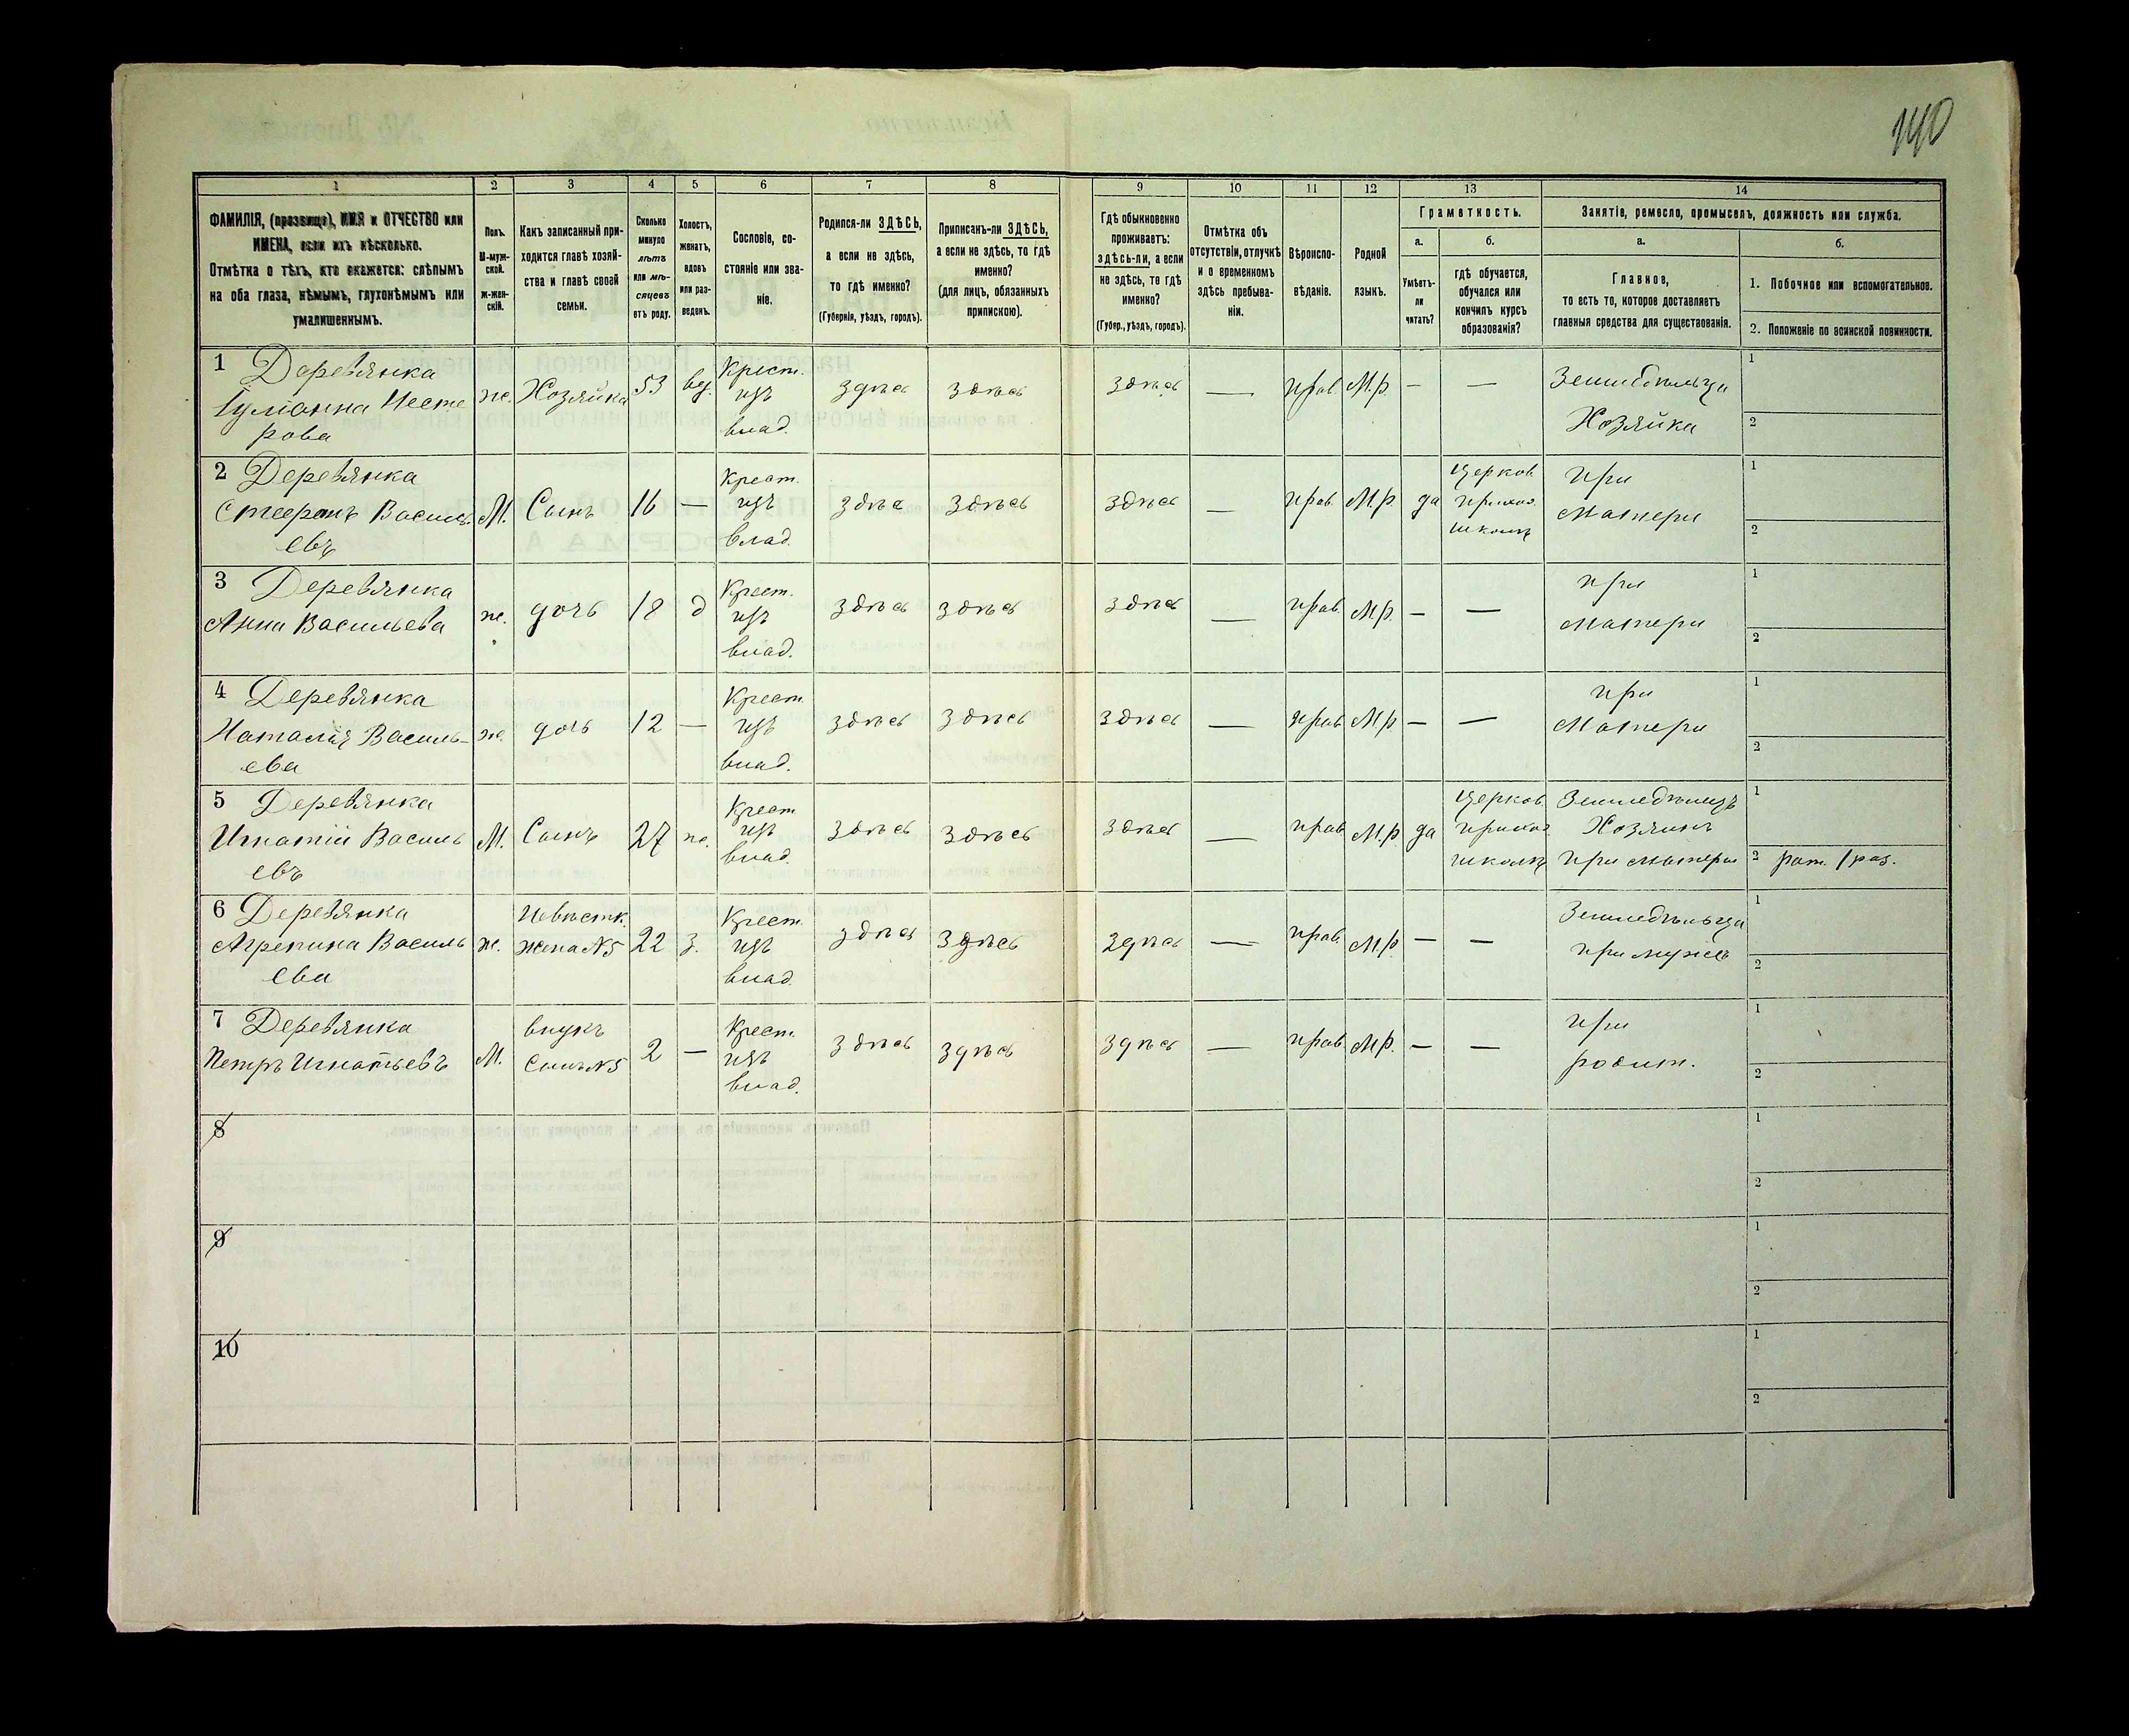 140
1 2 3 4 5 6 7 8 9 10 11 12 13 14
ФАМИЛІЯ, (прозвище), ИМЯ и ОТЧЕСТВО или
ИМЕНА, если ихъ нѣсколько.
Отмѣтка о тѣхъ, кто окажется: слѣпымъ
на оба глаза, нѣмымъ, глухонѣмымъ или
умалишеннымъ.
Полъ.
М-муж-
ской.
Ж-жен-
скій.
Какъ записанный при-
ходится главѣ хозяй-
ства и главѣ своей
семьи.
Сколько
минуло
лѣтъ
или мѣ-
сяцевъ
отъ роду.
Холостъ,
женатъ,
вдовъ
или раз-
веденъ.
Сословіе, со-
стояніе или зва-
ніе.
Родился-ли ЗДѢСЬ,
а если не здѣсь,
то гдѣ именно?
(Губернія, уѣздъ, городъ).
Приписанъ-ли ЗДѢСЬ,
а если не здѣсь, то гдѣ
именно?
(для лицъ, обязанныхъ
припискою).
Гдѣ обыкновенно
проживаетъ:
здѣсь-ли, а если
не здѣсь, то гдѣ
именно?
(Губер., уѣздъ, городъ).
Отмѣтка объ
отсутствіи, отлучкѣ
и о временномъ
здѣсь пребыва-
ніи.
Вѣроиспо-
вѣданіе.
Родной
языкъ.
Грамотность.
а.
Умѣетъ-
ли
читать?
б.
гдѣ обучается,
обучался или
кончилъ курсъ
образованія?
Занятіе, ремесло, промыселъ, должность или служба.
а.
Главное,
то есть то, которое доставляетъ
главныя средства для существованія.
б.
1. Побочное или вспомогательное.
2. Положеніе по воинской повинности.
1 Деревянка
Іуліанна Несте
рова
же. Хозяйка 53 вд.
Крест.
изъ
влад.
здѣсь здѣсь здѣсь — прав. М.р. — —
Земледѣльца
Хозяйка
1
2
2 Деревянка
Стефанъ Василь.
евъ
М. Сынъ 16 —
Крест.
изъ
влад.
здѣсь здѣсь здѣсь — прав. М.р. да
Церков.
приход.
школѣ
при
матери
1
2
3 Деревянка
Анна Васильева
же. дочь 18 д
Крест.
изъ
влад.
здѣсь здѣсь здѣсь — прав. М.р. — —
при
матери
1
2
4 Деревянка
Наталія Василь-
ева
же. дочь 12 —
Крест.
изъ
влад.
здѣсь здѣсь здѣсь — прав. М.р. — —
при
матери
1
2
5 Деревянка
Игнатій Василь
евъ
М. Сынъ 27 же.
Крест.
изъ
влад.
здѣсь здѣсь здѣсь — прав. М.р. да
Церков.
приход.
школѣ
Земледѣлецъ
Хозяинъ
при матери
1
2 рат. 1 раз.
6 Деревянка
Агрепина Василь
ева
же.
Невѣстк.
жена №5
22 з.
Крест.
изъ
влад.
здѣсь здѣсь здѣсь — прав. М.р. — —
Земледѣльца
при мужѣ
1
2
7 Деревянка
Петръ Игнатьевъ
М.
внукъ
Сынъ №5
2 —
Крест.
изъ
влад.
здѣсь здѣсь здѣсь — прав. М.р. — —
при
родит.
1
2
8
1
2
9
1
2
10
1
2